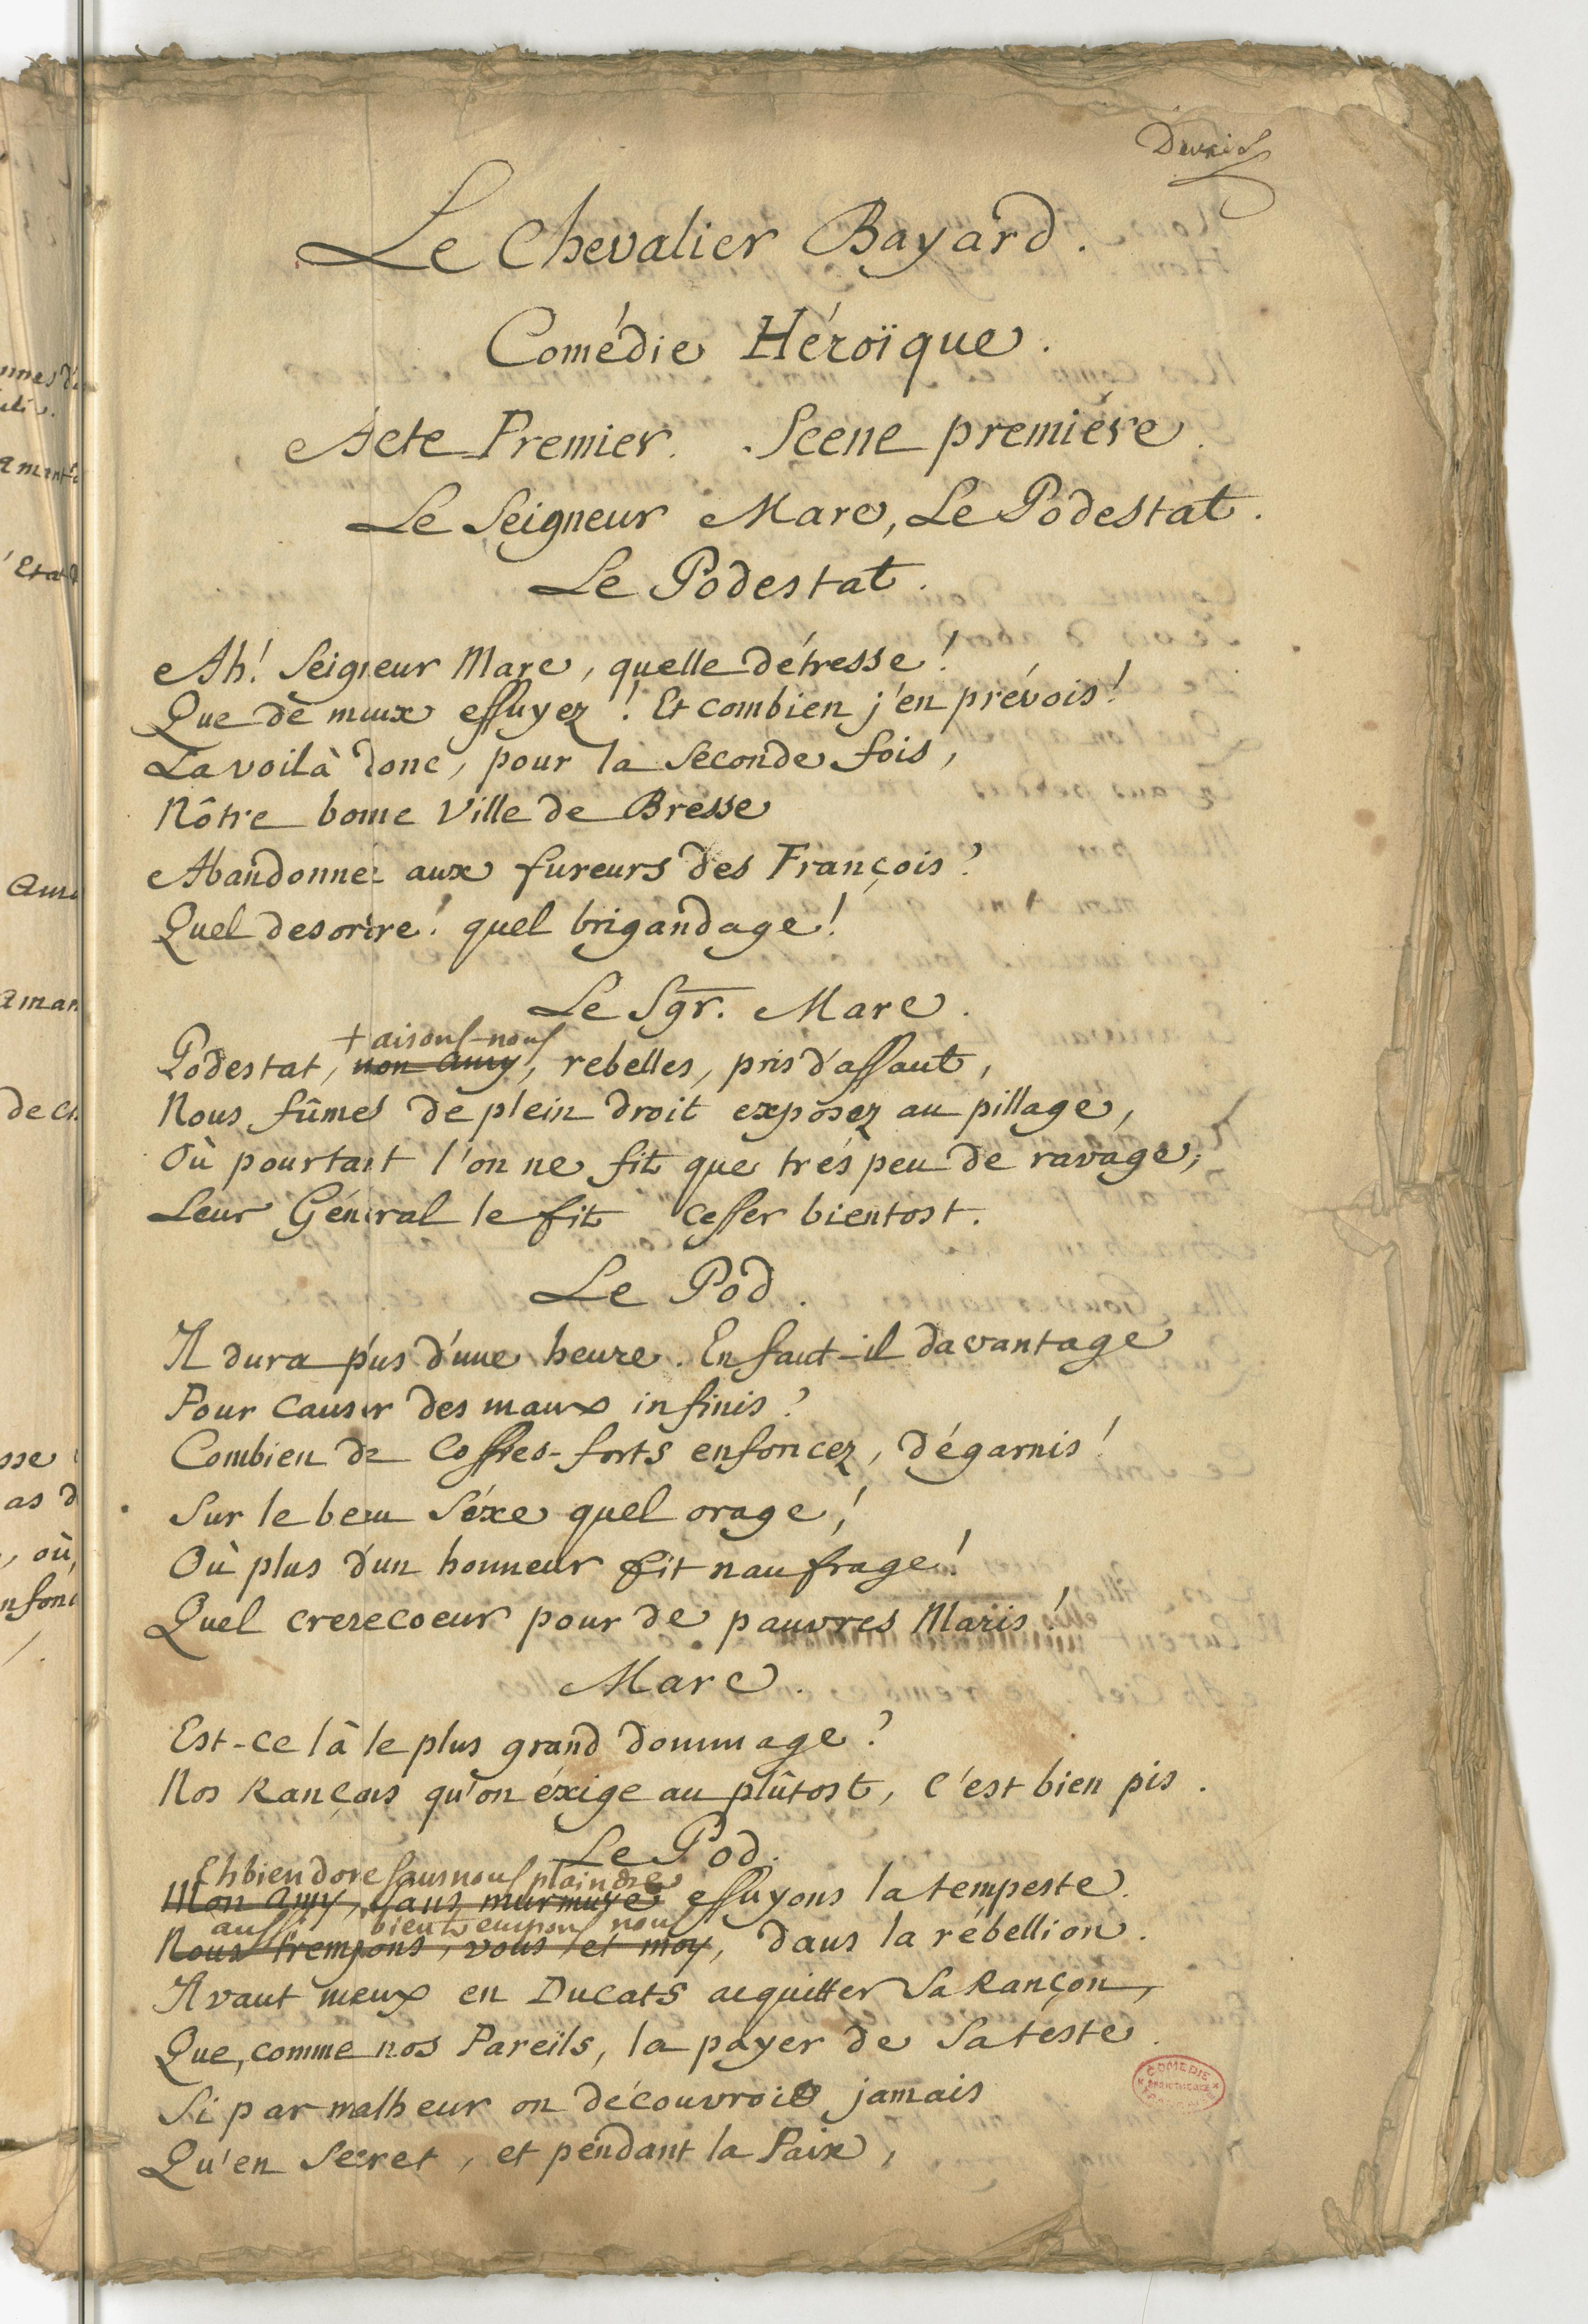 Le Chevalier Bayard.
Comédie Héroïque.
Acte Premier. Scene premiére.
Le Seigneur Marc, Le Podestat.
Le Podestat.
Ah! Seigneur Marc, quelle détresse!
Que de maux essuyez! Et combien j'en prévois!
La voilà donc, pour la seconde fois,
Nôtre bonne Ville de Bresse
Abandonnée aux fureurs des François?
Quel desordre! quel brigandage!
Le Sgr. Marc.
+ aisons-nous
Podestat, mon amy, rebelles, pris d'assaut,
Nous fûmes de plein droit exposez au pillage,
Où pourtant l'on ne fit que trés peu de ravage;
Leur Général le fit cesser bientost.
Le Pod.
Il dura plus d'une heure. En faut-il davantage
Pour causer des maux infinis?
Combien de Coffres-forts enfoncez, dégarnis!
Sur le beau Séxe quel orage,!
Où plus d'un honneur fit naufrage!
Quel crevecoeur pour de pauvres Maris!
Marc.
Est-ce là le plus grand dommage?
Nos Rançons qu'on éxige au plûtost, c'est bien pis.
Le Pod.
Ehbien donc sans nous plaindre
Mon amy, sans murmure essuyons la tempeste.
aussi bien trempons nous
Nous trempons, vous et moy, dans la rébellion.
Il vaut mieux en Ducats acquitter sa Rançon,
Que, comme nos Pareils, la payer de sa teste.
Si par malheur on découvroit jamais
Qu'en secret, et pendant la Paix,